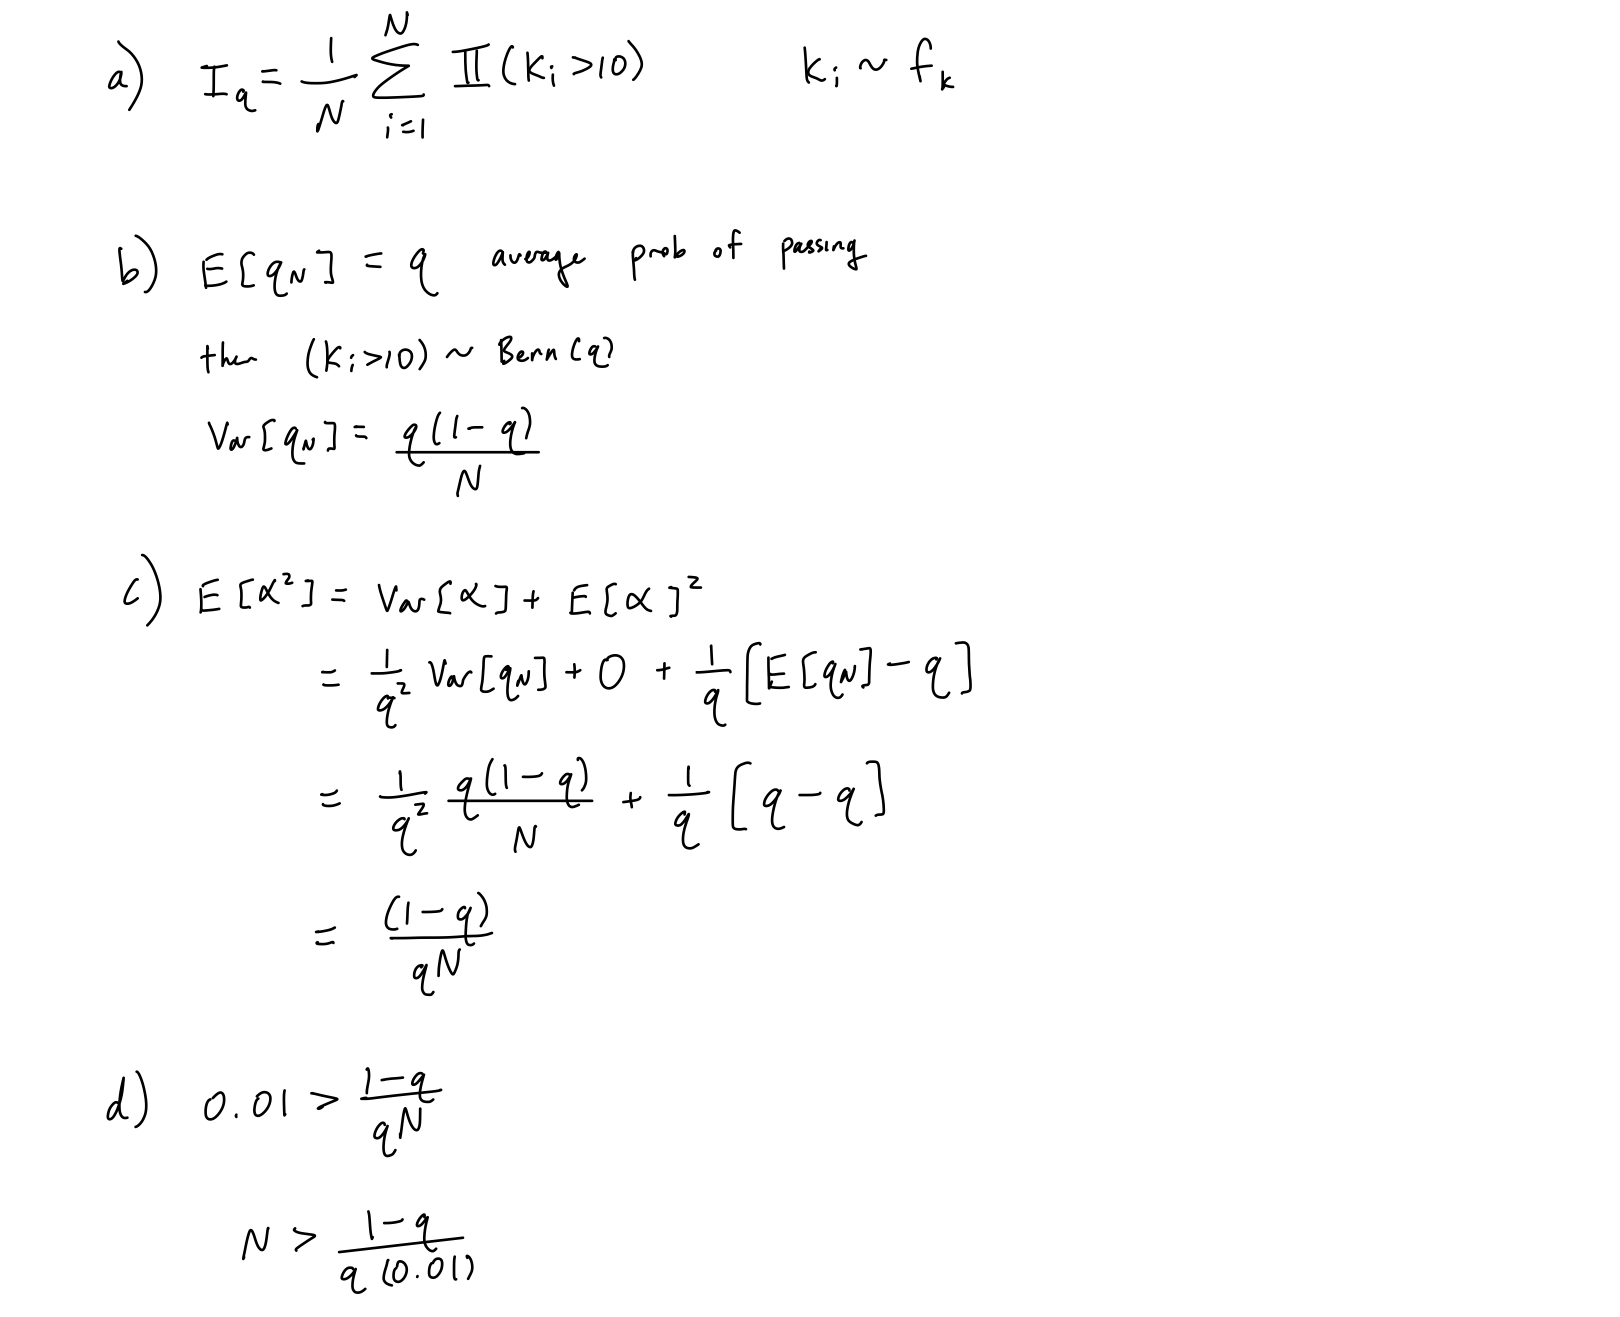 a) I_q = \frac{1}{N} \sum_{i=1}^{N} 𝕀(K_i > 10) K_i ~ f_k
b) E[q_N] = q average prob of passing
then (K_i > 10) ~ Bern(q)
Var[q_N] = \frac{q(1-q)}{N}
c) E[α²] = Var[α] + E[α]²
= \frac{1}{q²} Var[q_N] + 0 + \frac{1}{q} [E[q_N] - q]
= \frac{1}{q²} \frac{q(1-q)}{N} + \frac{1}{q} [q - q]
= \frac{(1-q)}{qN}
d) 0.01 > \frac{1-q}{qN}
N > \frac{1-q}{q(0.01)}